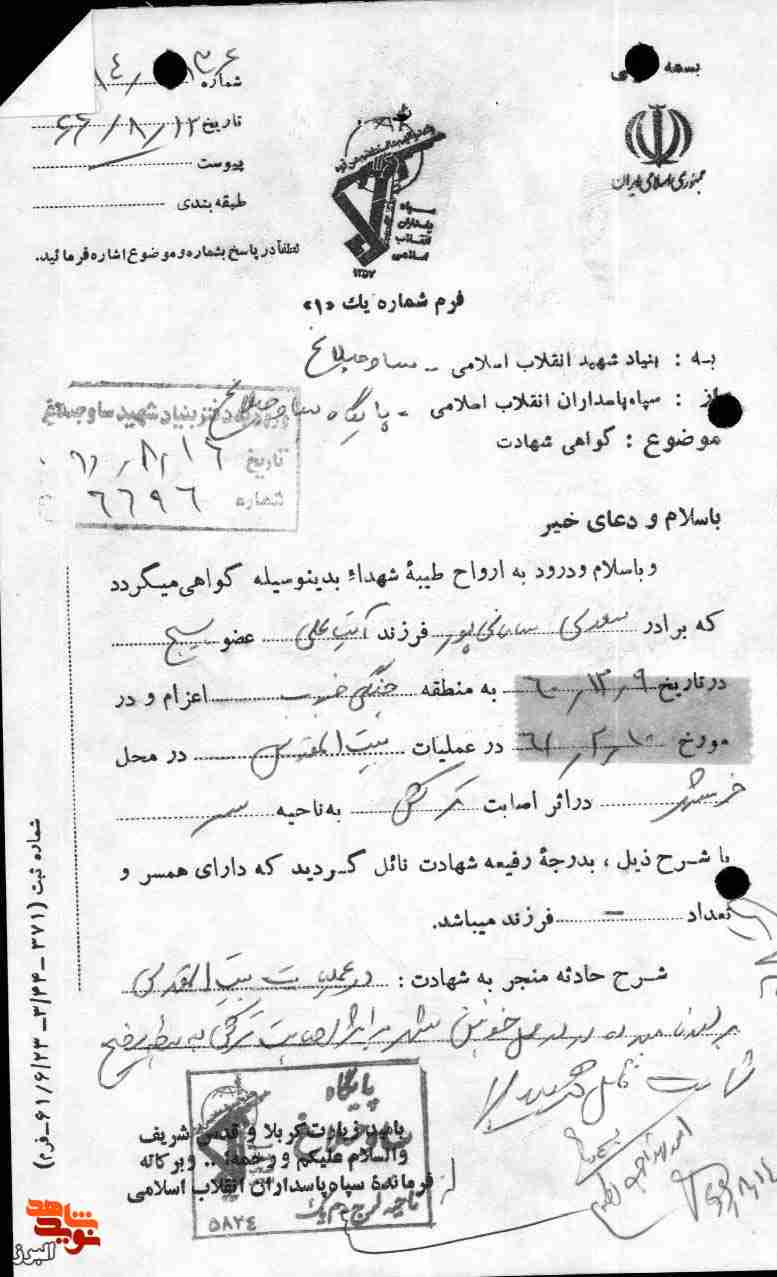 بسمه
جمهوری اسلامی ایران
شماره
تاریخ ۶۶/۸/۱۲
پیوست
طبقه بندی
لطفاً در پاسخ بشماره و موضوع اشاره فرمائید.
سپاه
پاسداران
انقلاب
اسلامی
۱۳۵۷
فرم شماره یك «۱»
به : بنیاد شهید انقلاب اسلامی ـ ساوجبلاغ
از : سپاه پاسداران انقلاب اسلامی ـ پایگاه ساوجبلاغ
موضوع : گواهی شهادت
دفتر بنیاد شهید ساوجبلاغ
تاریخ ۶۶/۸/۱۶
شماره ۶۶۹۶
باسلام و دعای خیر
و باسلام ودرود به ارواح طیبۀ شهداء بدینوسیله گواهی میگردد
که برادر فرزند عضو بسیج
در تاریخ ۶۰/۱۲/۹ به منطقه جنگی جنوب اعزام و در
مورخ ۶۱/۲/۱۰ در عملیات بیت المقدس در محل
خرمشهر در اثر اصابت ترکش به ناحیه سر
با شرح ذیل ، بدرجۀ رفیعه شهادت نائل گردید که دارای همسر و
تعداد - فرزند میباشد.
شرح حادثه منجر به شهادت : در عملیات بیت المقدس
خونین شهر بر اثر اصابت ترکش به
شهادت نائل
پایگاه
ساوجبلاغ
بامید زیارت کربلا و قدس شریف
والسلام علیکم و رحمةا... وبرکاته
فرماندۀ سپاه پاسداران انقلاب اسلامی
ناحیه کرج
۵۸۲۴
شماره ثبت (۳۷۱ ـ ۳/۴۴ ـ ۶۱/۶/۲۳ ـ فرم)
نوید شاهد
البرز